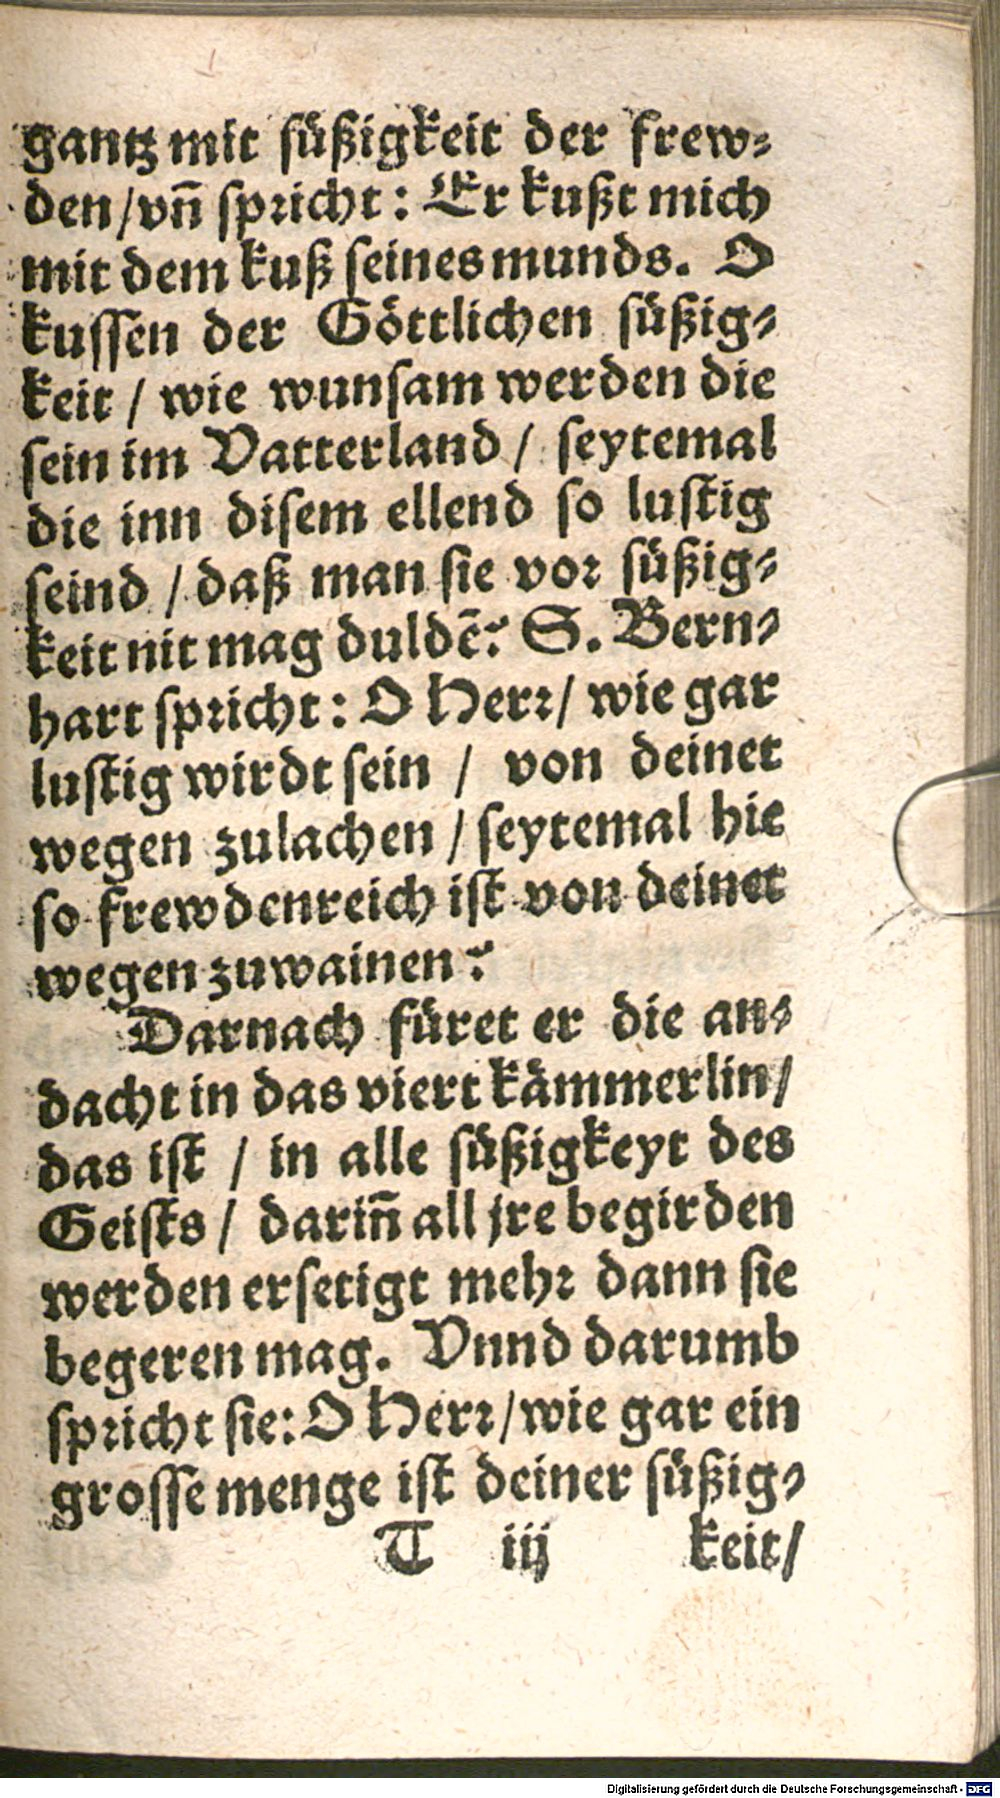 gantz mit ſüßigkeit der frew⸗
den/vñ ſpricht: Er kußt mich
mit dem kuß ſeines munds. O
kuſſen der Göttlichen ſüßig⸗
keit / wie wunſam werden die
ſein im Vatterland / ſeytemal
die inn diſem ellend ſo luſtig
ſeind / daß man ſie vor ſüßig⸗
keit nit mag duldẽ? S. Bern⸗
hart ſpricht: O Herr/ wie gar
luſtig wirdt ſein / von deinet
wegen zulachen / ſeytemal hie
ſo frewdenreich iſt von deinet
wegen zuwainen?
Darnach füret er die an⸗
dacht in das viert kämmerlin/
das iſt / in alle ſüßigkeyt des
Geiſts / dariñ all jre begirden
werden erſetigt mehr dann ſie
begeren mag. Vnnd darumb
ſpricht ſie: O Herr/wie gar ein
groſſe menge iſt deiner ſüßig⸗
T iij keit/
Digitalisierung gefördert durch die Deutsche Forschungsgemeinschaft - DFG